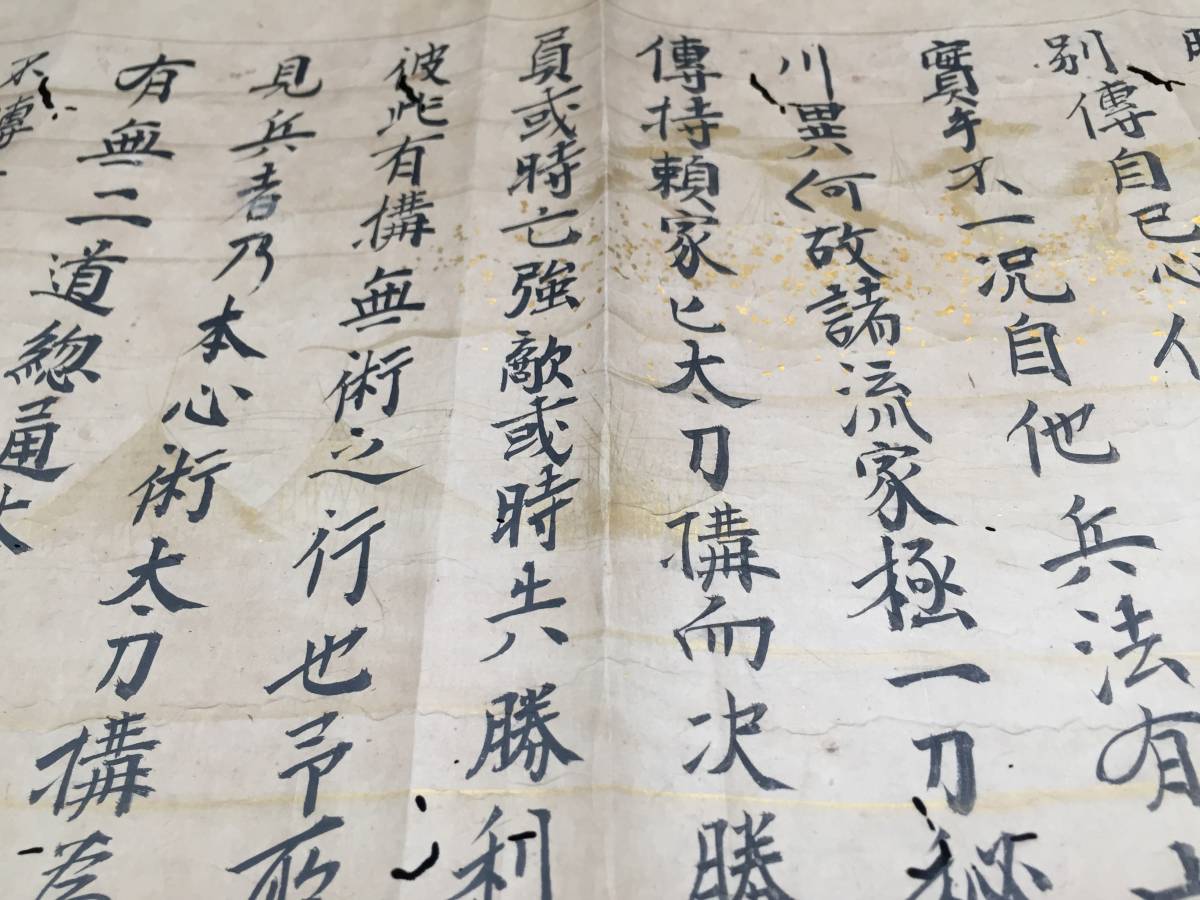 別傳自己心人
實手不一況自他兵法有
川異何故諸流家極一刀秘
傳持頼家匕太刀構而決勝
員或時亡強敵或時失勝利
彼此有構無術之行也予所
見兵者乃本心術太刀構為
有無二道總通太
不傳